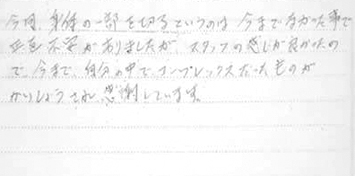 今回、身体の一部を切るというのは今までなかった事で
正直不安がありましたが スタッフの感じが良かったの
で、今まで、自分の中でコンプレックスだったものが
かいしょうされ 感謝しています。